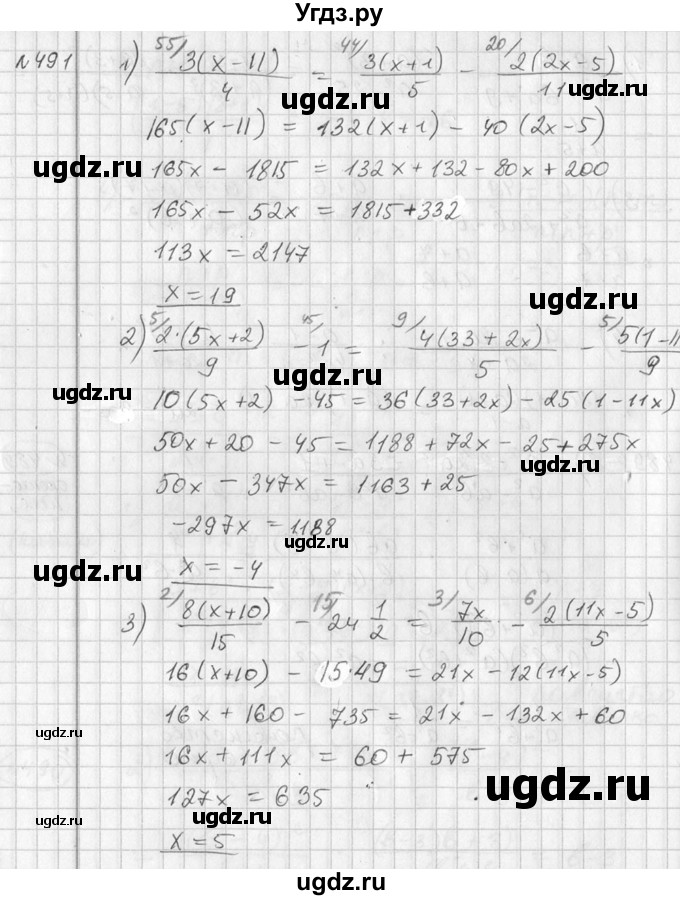 Угдз.ру
№491 1) 55/ 3(x-11)/4 = 44/ 3(x+1)/5 - 20/ 2(2x-5)/11
ugdz.ru ugdz.ru
165(x-11) = 132(x+1) - 40(2x-5)
ugdz.ru
165x - 1815 = 132x + 132 - 80x + 200
165x - 52x = 1815+332
113x = 2147
x = 19
ugdz.ru
2) 5/ 2·(5x+2)/9 - 45/ 1 = 9/ 4(33+2x)/5 - 5/ 5(1-11
/9
ugdz.ru
ugdz.ru
10(5x+2) - 45 = 36(33+2x) - 25(1-11x)
50x + 20 - 45 = 1188 + 72x - 25 + 275x
ugdz.ru
50x - 347x = 1163 + 25
-297x = 1188
ugdz.ru ugdz.ru
x = -4
3) 2/ 8(x+10)/15 - 15/ 24 1/2 = 3/ 7x/10 - 6/ 2(11x-5)/5
16(x+10) - 15·49 = 21x - 12(11x-5)
16x + 160 - 735 = 21x - 132x + 60
ugdz.ru ugdz.ru
16x + 111x = 60 + 575
ugdz.ru
127x = 635
ugdz.ru ugdz.ru
x = 5
ugdz.ru